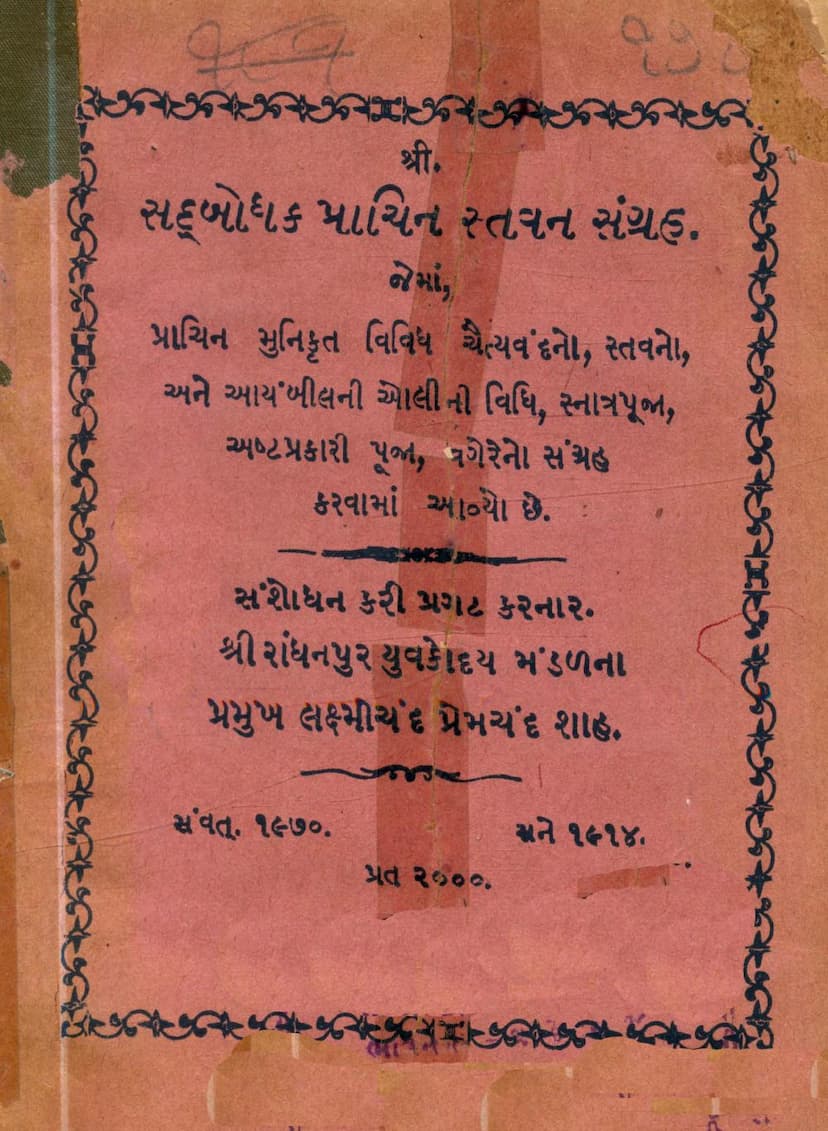 શ્રી.
સદ્‌બોધક પ્રાચિન સ્તવન સંગ્રહ.
જેમાં,
પ્રાચિન મુનિકૃત વિવિધ ચૈત્યવંદનો, સ્તવનો,
અને આયંબીલની ઓલીની વિધિ, સ્નાત્રપૂજા,
અષ્ટપ્રકારી પૂજા, વગેરેનો સંગ્રહ
કરવામાં આવ્યો છે.
સંશોધન કરી પ્રગટ કરનાર.
શ્રી રાંધનપુર યુવકોદય મંડળના
પ્રમુખ લક્ષ્મીચંદ પ્રેમચંદ શાહ.
સંવત્. ૧૯૭૦. સને ૧૯૧૪.
પ્રત ૨૦૦૦.